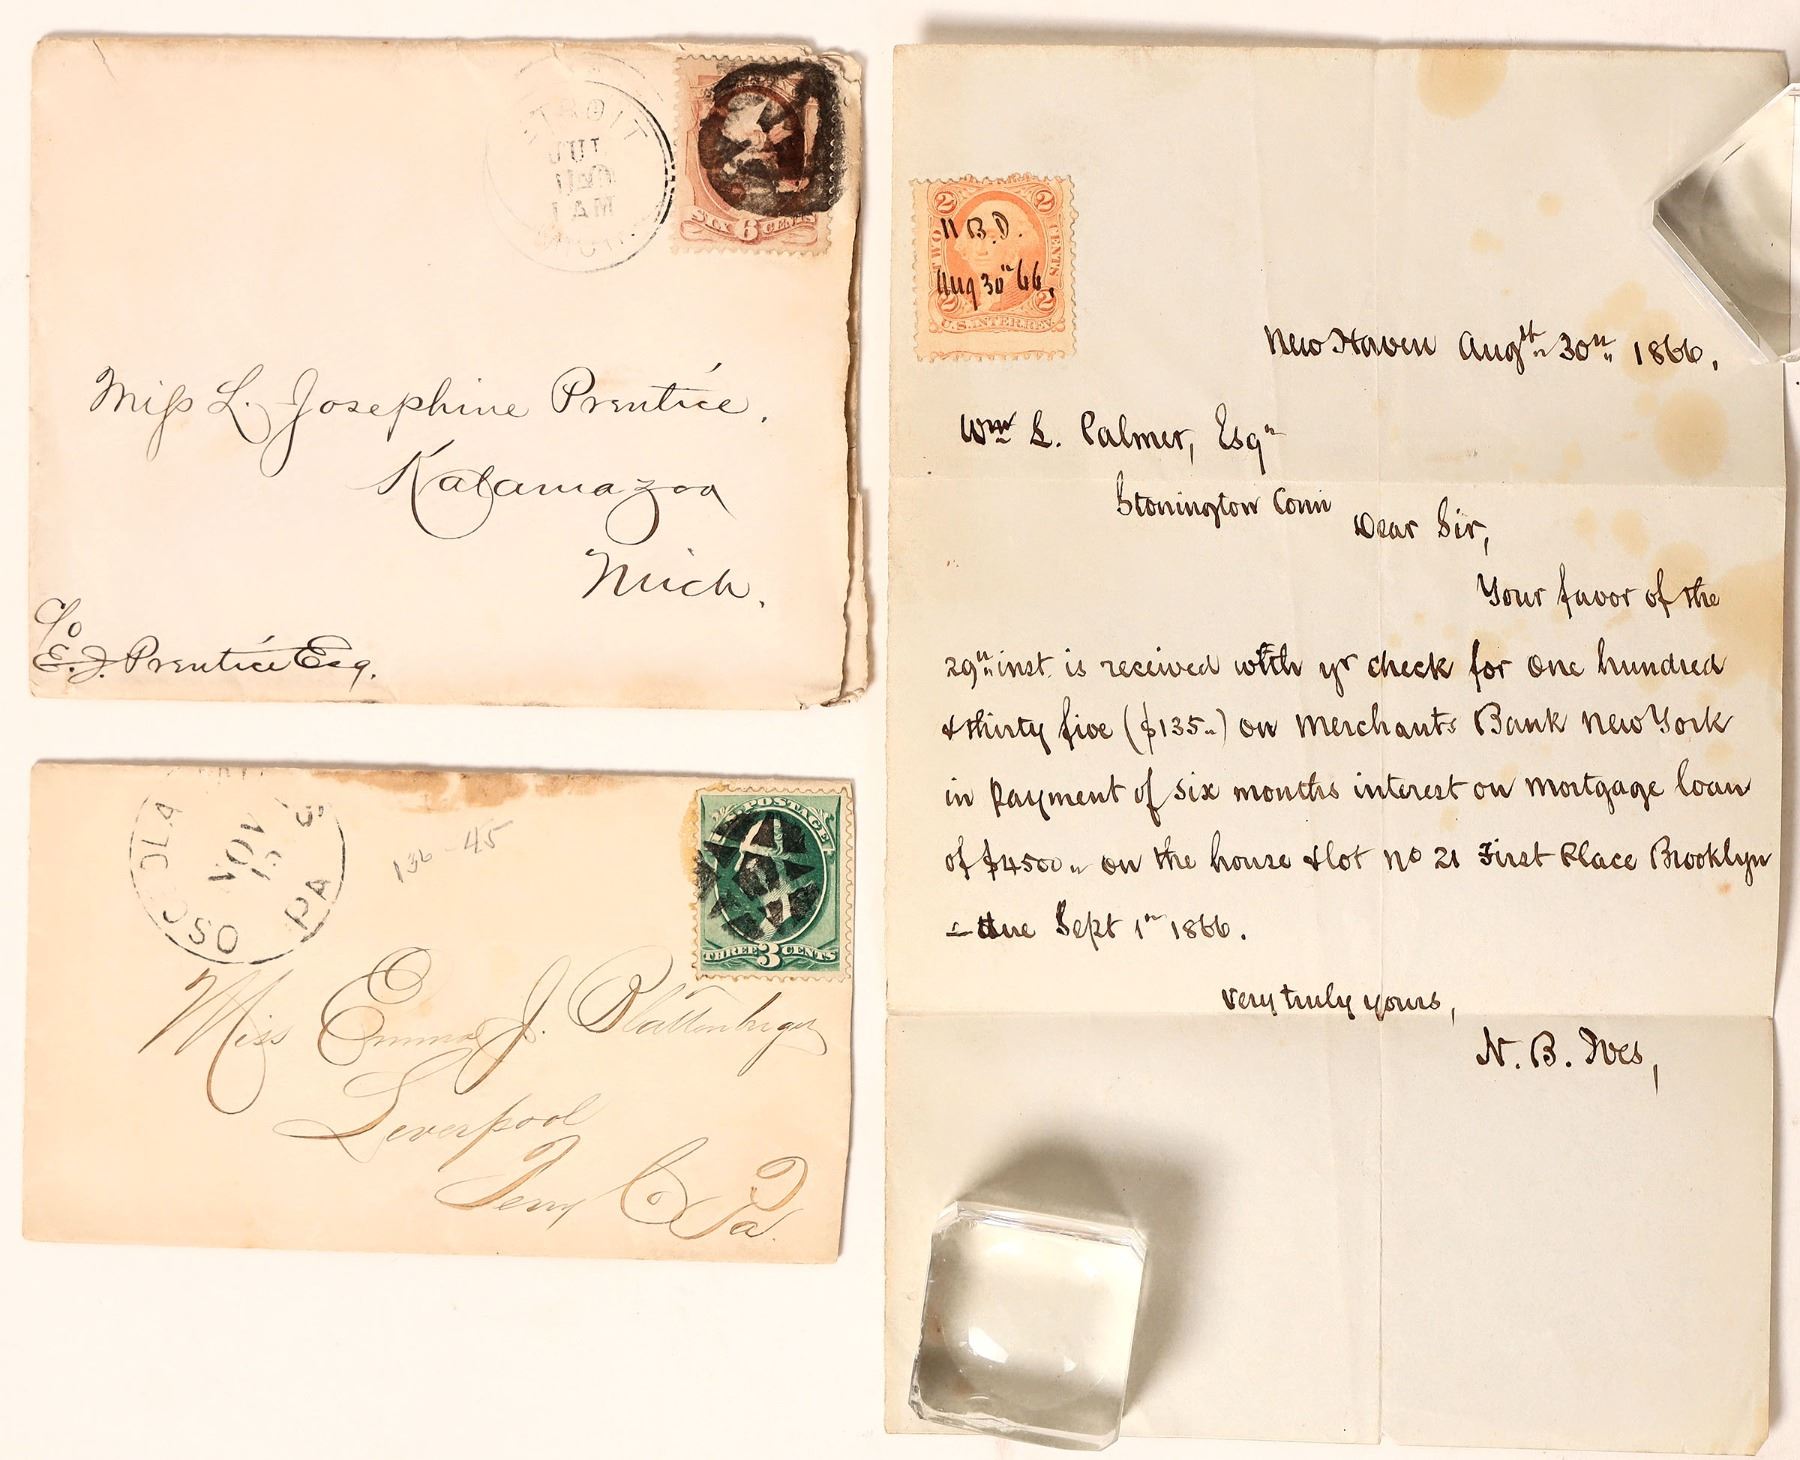 DETROIT
JUL
1 AM
MICH.
SIX 6 CENTS
Miss L. Josephine Prentice.
Kalamazoo
Mich.
c/o
E. J. Prentice Esq.
OSCEOLA
NOV
PA
136-45
U.S. POSTAGE
THREE 3 CENTS
Miss Emma J. Plattenberger
Liverpool
Perry Co
Pa.
2 2
TWO CENTS
N. B. D.
Aug 30" 66.
2 2
U.S. INTER. REV.
New Haven Augst 30th 1866.
Wm L. Palmer, Esqr
Stonington Conn
Dear Sir,
Your favor of the
29" inst. is received with yr check for One hundred
& thirty five ($135..) on Merchants Bank New York
in payment of six months interest on mortgage loan
of $4500.. on the house & lot No 21 First Place Brooklyn
– due Sept 1st 1866.
Very truly yours,
N. B. Ives,